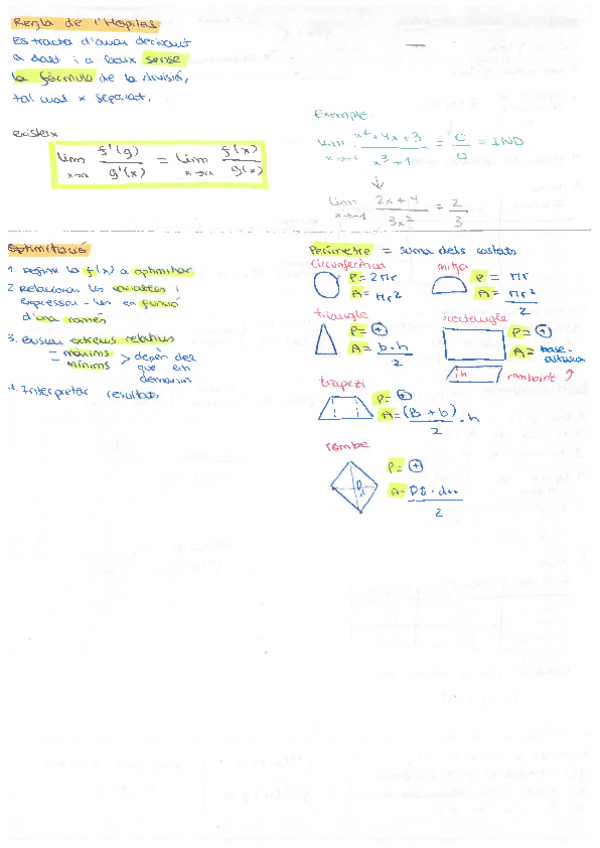 Regla de l'Hopital
Es tracta d'anar derivant
a dalt i a baix sense
la fórmula de la divisió,
tal qual x separat.
existeix
lim x→α f'(g) / g'(x) = lim x→α f(x) / g(x)
Exemple:
x² + 4x + 3 / x³ + 1 = 0 / 0 = IND
lim x→-1 2x + 4 / 3x² = 2 / 3
Optimitació
1. Definir la f(x) a optimitar
2. Relacionar les variables i
expressar-les en funció
d'una només
3. Buscar extrems relatius
= màxims
mínims > depèn del
que em
demanin
4. Interpretar resultats
Perímetre = suma dels costats
circumferència
P = 2πr
A = πr²
mitja
P = πr
A = πr² / 2
triangle
P = +
A = b · h / 2
rectangle
P = +
A = base · altura
h
romboide
trapezi
P = +
A = (B + b) / 2 · h
rombe
P = +
A =
2